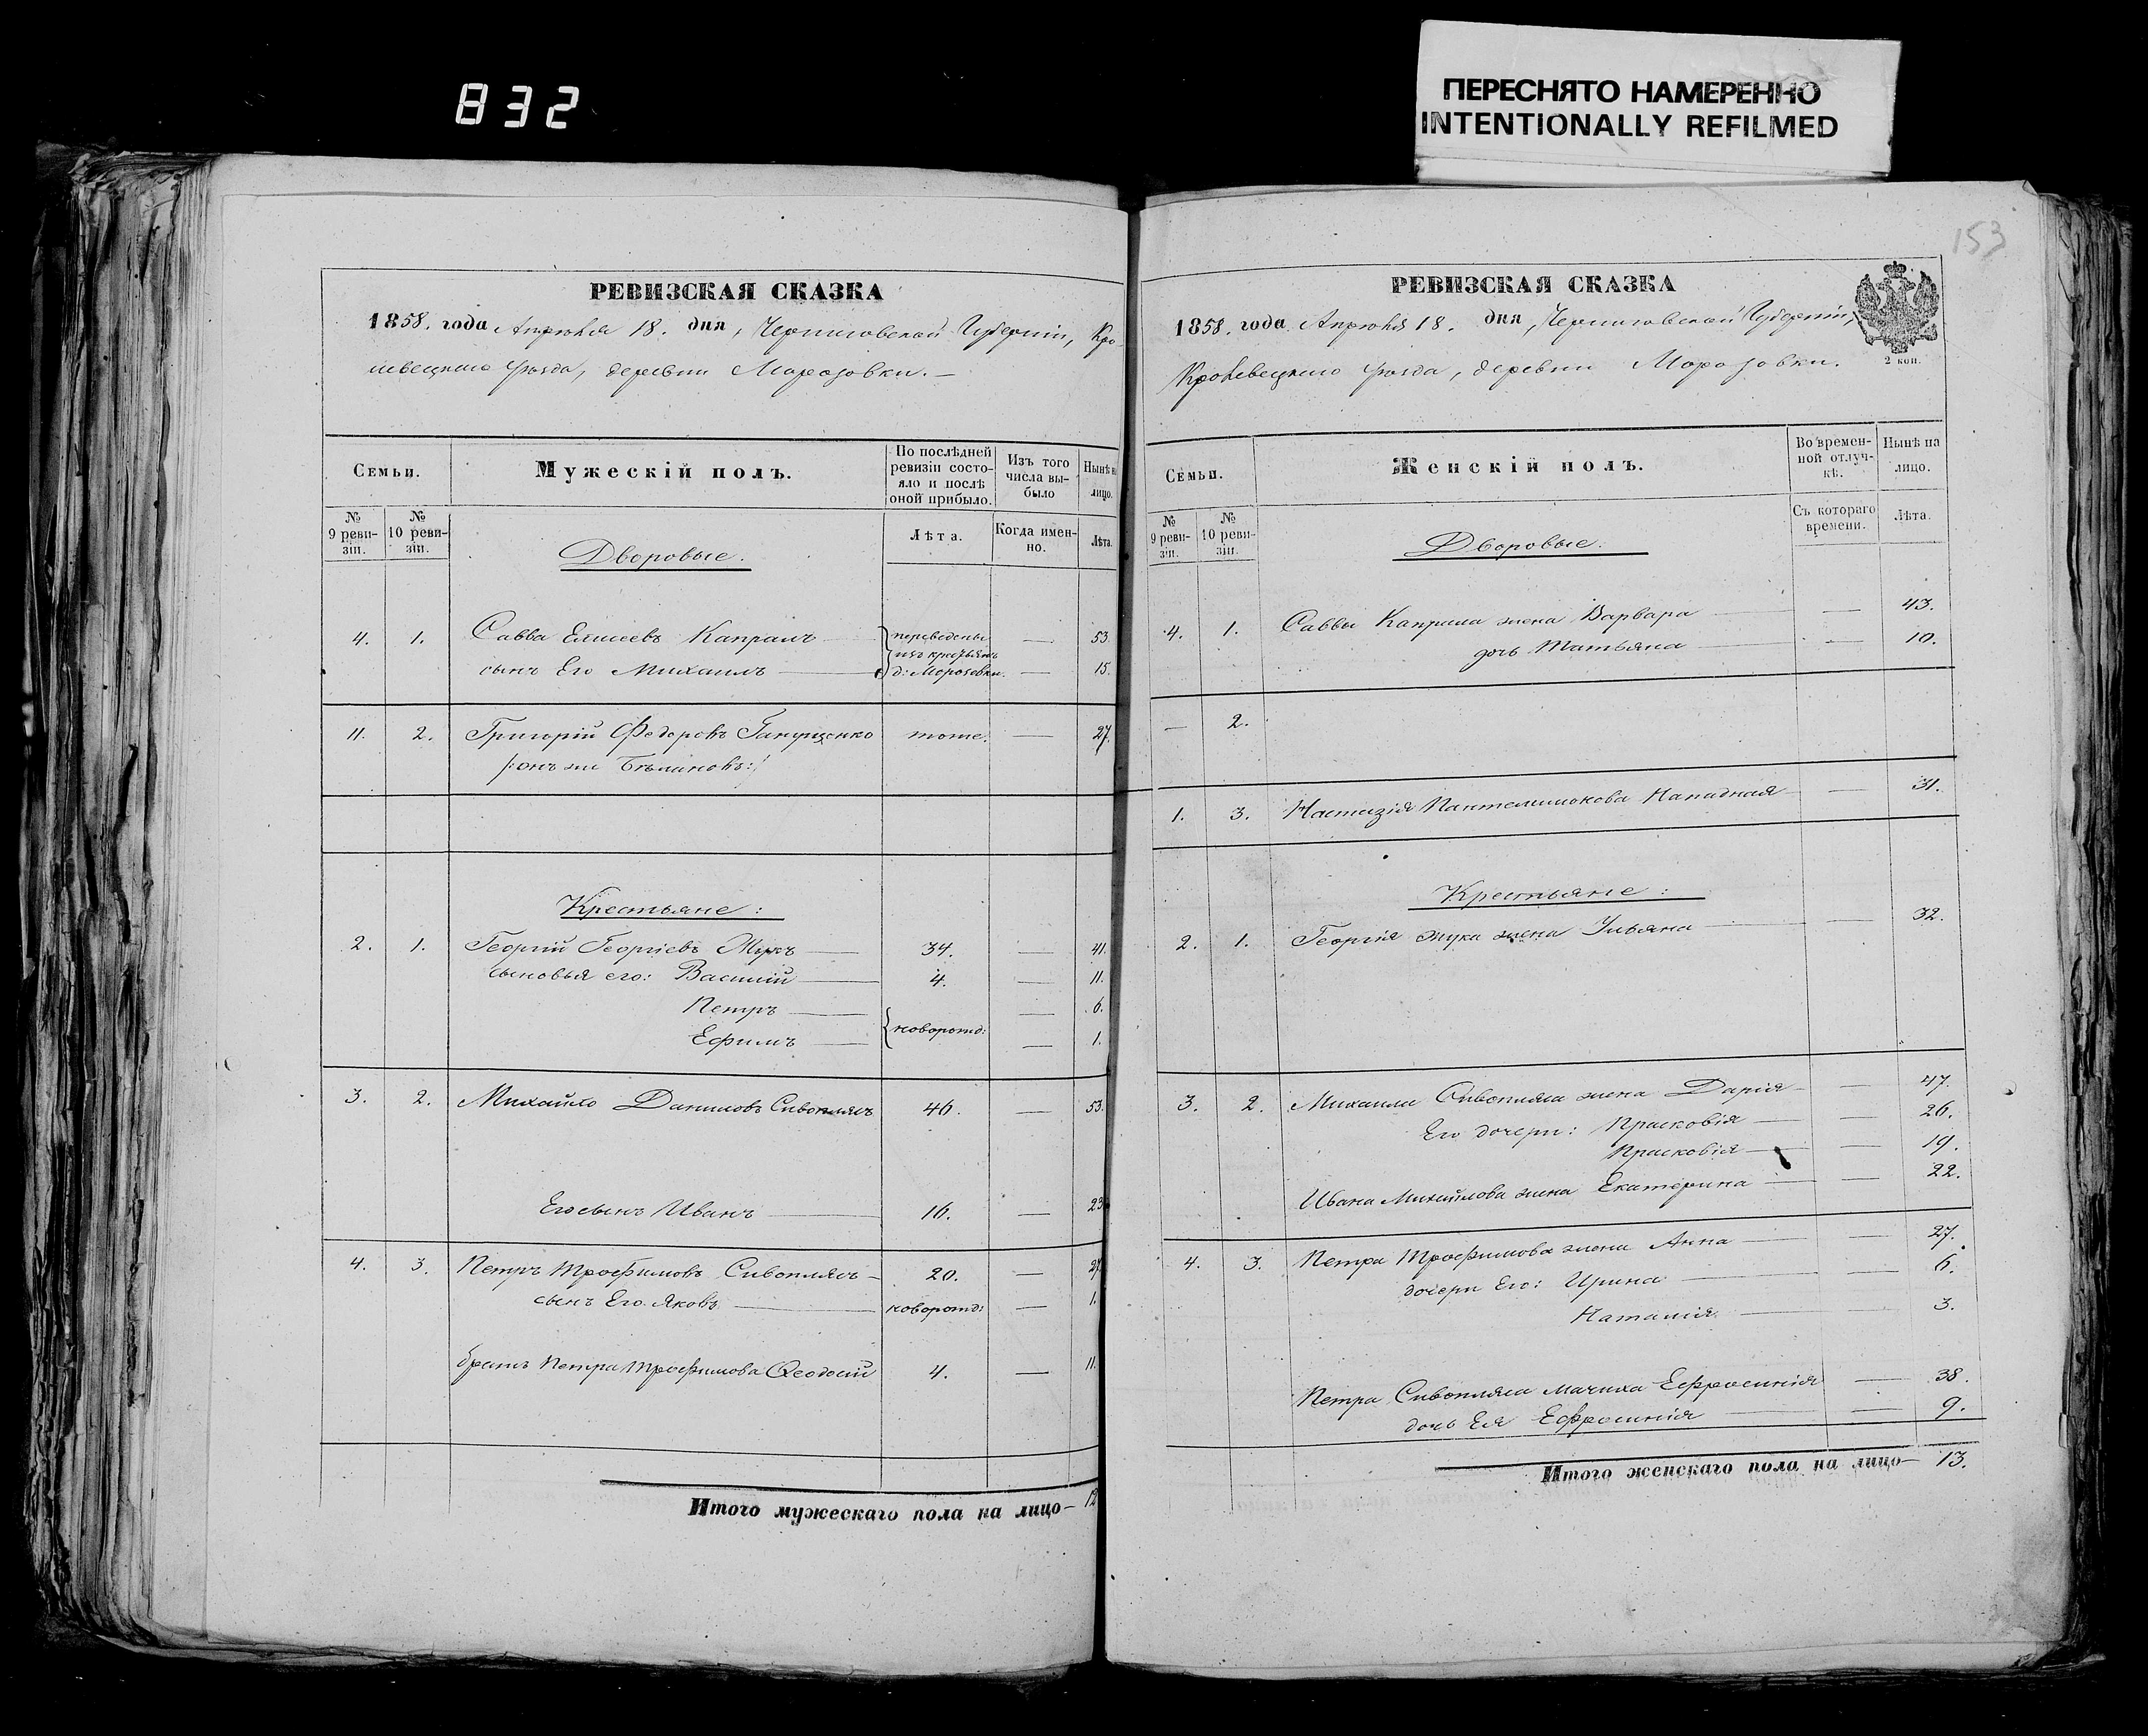 832
ПЕРЕСНЯТО НАМЕРЕННО
INTENTIONALLY REFILMED
РЕВИЗСКАЯ СКАЗКА
1858. года Апрѣля 18. дня, Черниговской Губерніи, Кро-
левецкаго уѣзда, деревни Морозовки.
Семьи.
Мужескій полъ.
По послѣдней ревизіи состо-
яло и послѣ
оной прибыло.
Изъ того
числа вы-
было
Нынѣ на
лицо.
№
9 реви-
зіи.
№
10 реви-
зіи.
Дворовые.
Лѣта.
Когда имен-
но.
Лѣта.
4. 1. Савва Елисеевъ Капралъ — переведены — 53.
изъ крестьянъ
сынъ Его Михаилъ — д: Морозовки. — 15.
11. 2. Григорій Федоровъ тоже. — 27.
Крестьяне:
2. 1. Георгій Георгіевъ Жукъ — 34. — 41.
сыновья его: Василій — 4. — 11.
Петръ — — 6.
новорожд:
Ефимъ — — 1.
3. 2. Михайло Даниловъ Сивоплясъ 46. — 53.
Его сынъ Иванъ — 16. — 23
4. 3. Петръ Трофимовъ Сивоплясъ — 20. — 27
сынъ Его Яковъ — новорожд: — 1.
братъ Петра Трофимова Ѳеодосій 4. — 11.
Итого мужескаго пола на лицо — 12
153
РЕВИЗСКАЯ СКАЗКА
1858. года Апрѣля 18. дня, Черниговской Губерніи,
Кролевецкаго уѣзда, деревни Морозовки.
2 коп.
Семьи.
Женскій полъ.
Во времен-
ной отлуч-
кѣ.
Нынѣ на
лицо.
№
9 реви-
зіи.
№
10 реви-
зіи.
Дворовые.
Съ котораго
времени.
Лѣта.
4. 1. Саввы Капрала жена Варвара — — 43.
дочь Татьяна — — 10.
— 2.
1. 3. Настазія Пантелимонова Нападная — — 31.
Крестьяне:
2. 1. Георгія Жука жена Ульяна — — 32.
3. 2. Михаила Сивопляса жена Дарія — — 47.
Его дочери: Прасковія — — 26.
Прасковія — — 19.
Ивана Михайлова жена Екатерина — — 22.
4. 3. Петра Трофимова жена Анна — — 27.
дочери Его: Ирина — — 6.
Наталія — — 3.
Петра Сивопляса мачиха Ефросинія — 38.
дочь Ея Ефросинія — — 9.
Итого женскаго пола на лицо — 13.